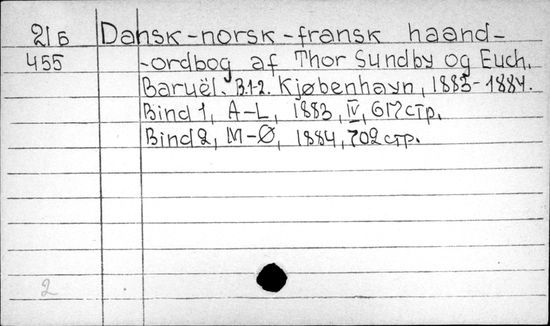 21Б Dansk-norsk-fransk haand-
455 -ordbog af Thor Sundby og Euch.
Baruël. B.1-2. Kjøbenhavn, 1883-1884.
Bind 1, A-L, 1883, IV, 617 стр.
Bind 2, M-Ø, 1884, 702 стр.
2